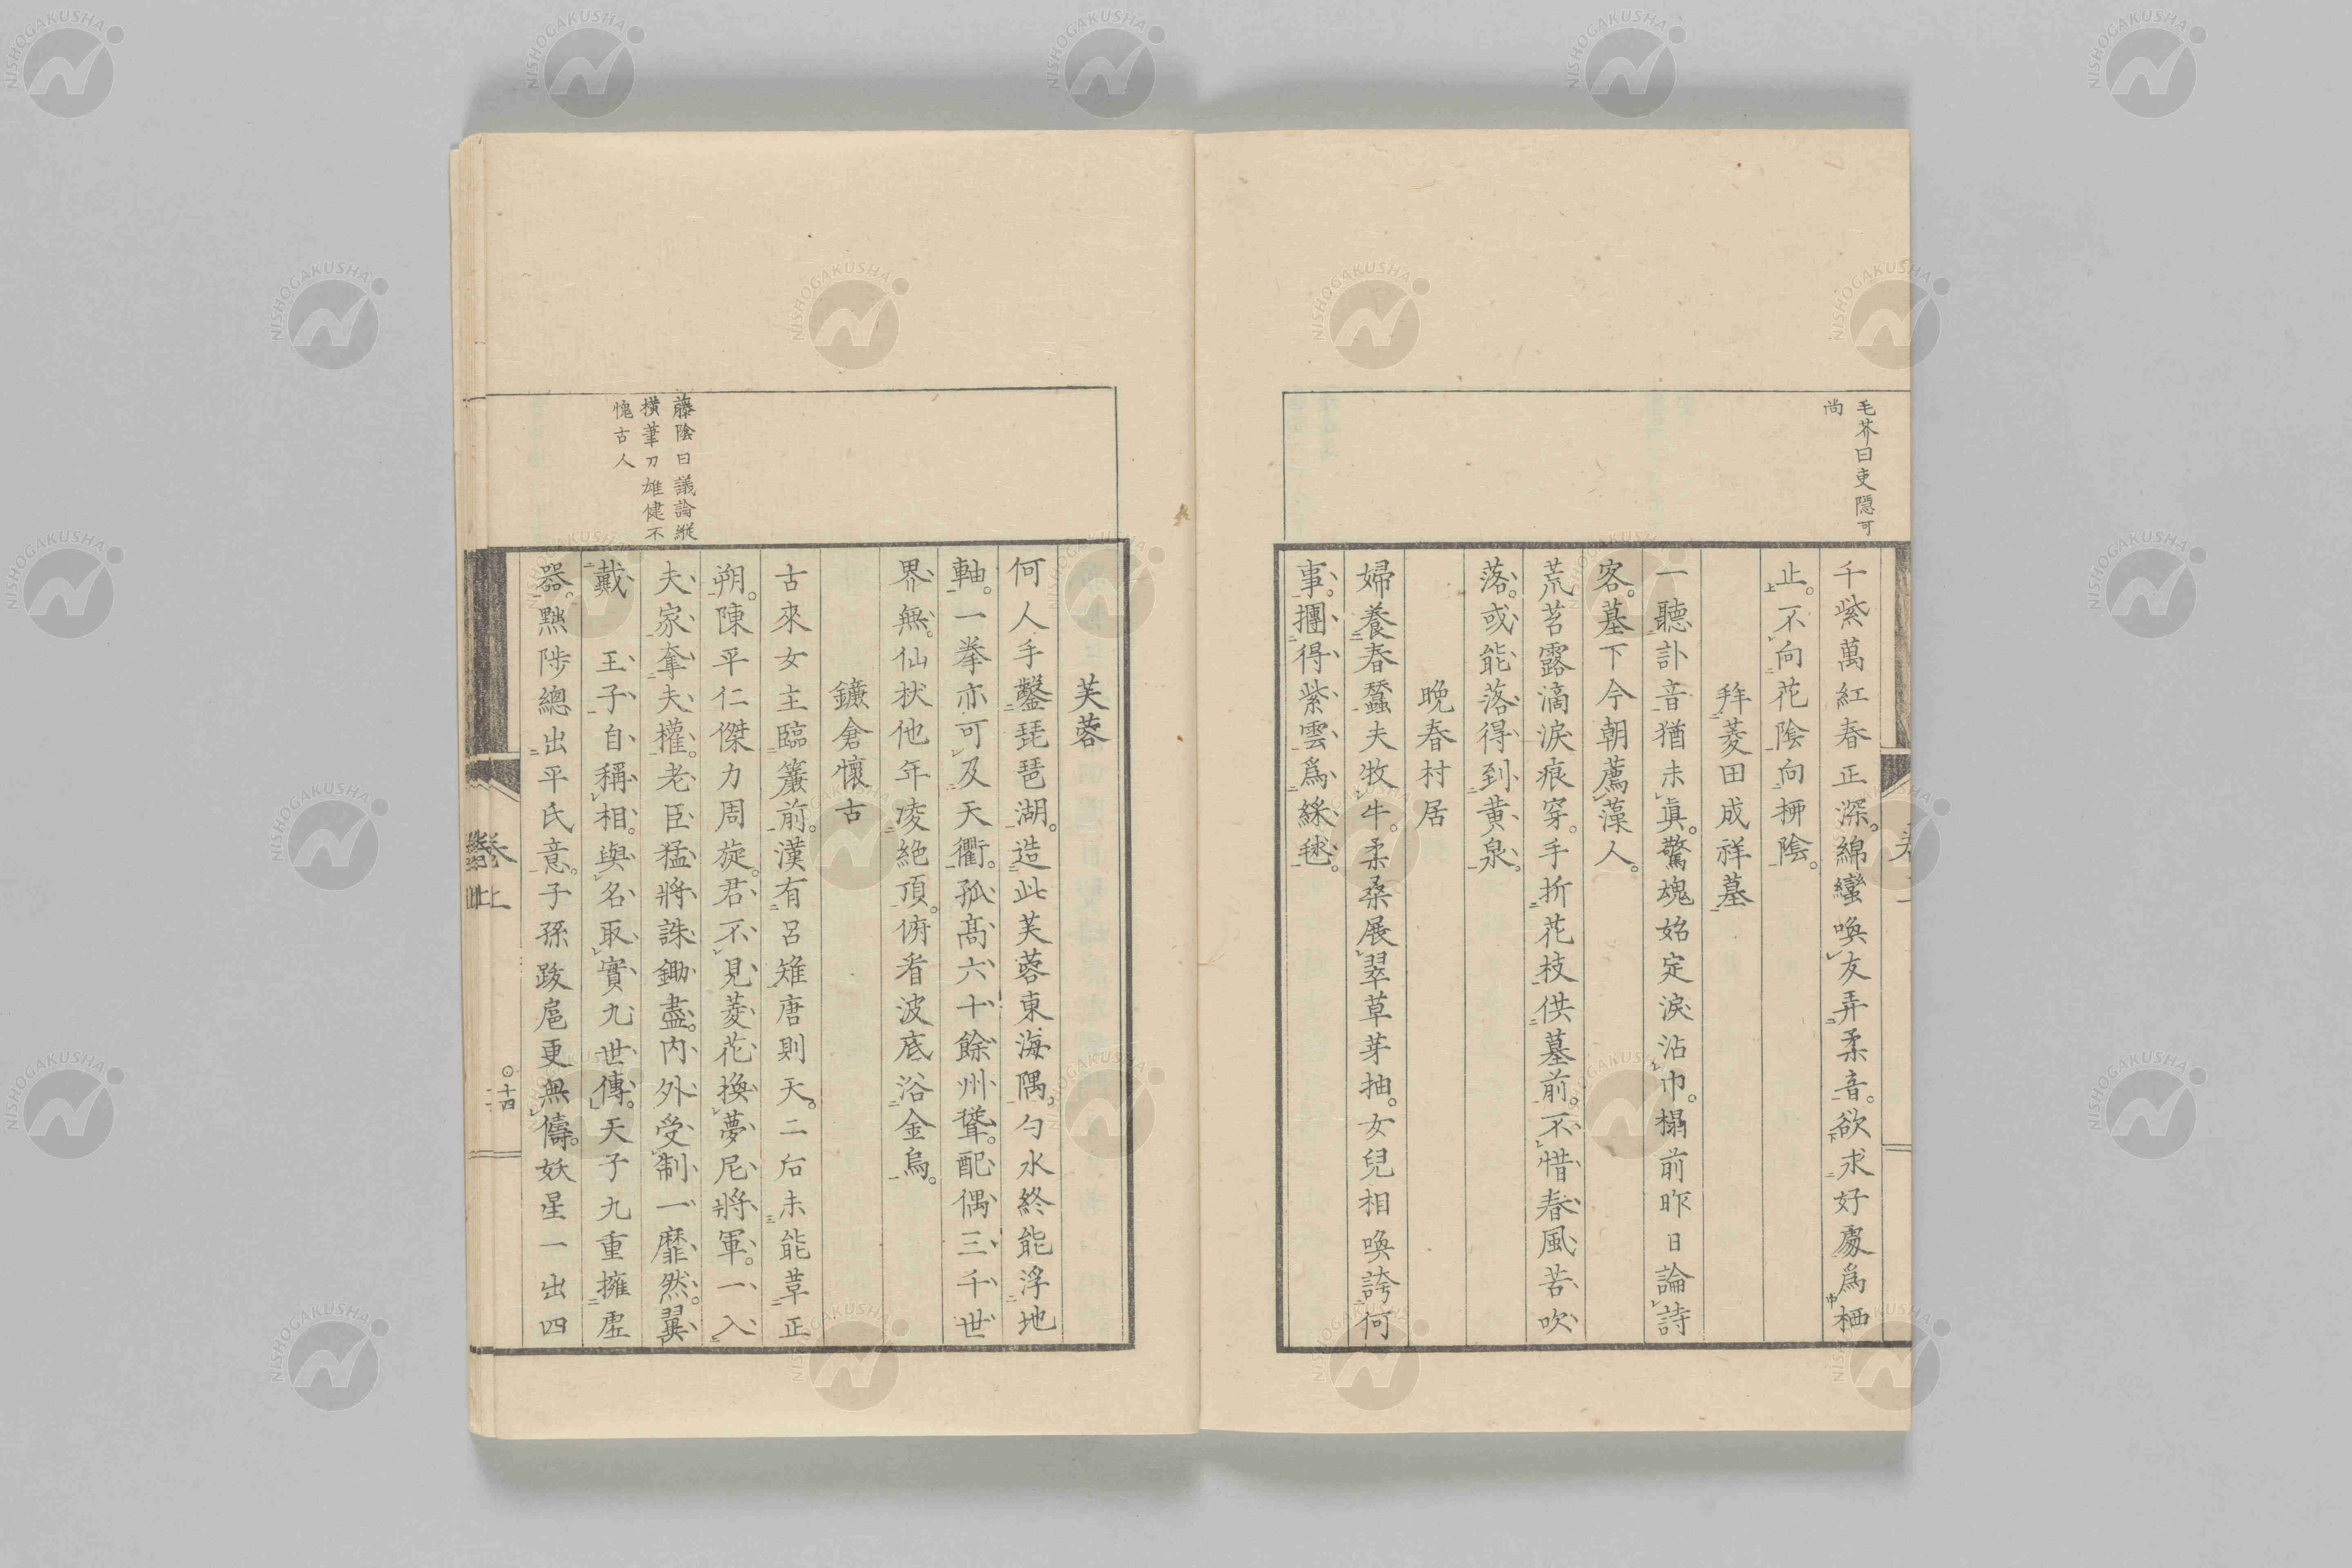 毛芥曰吏隱可
尚
千紫萬紅春正深。綿蠻喚友弄柔音。欲求好處爲栖
止。不向花陰向栁陰。
拜菱田成祥墓
一聽訃音猶未眞。驚魂始定淚沾巾。榻前昨日論詩
客。墓下今朝薦藻人。
荒苔露滴淚痕穿。手折花枝供墓前。不惜春風苦吹
落。或能落得到黄泉。
晩春村居
婦養春蠶夫牧牛。柔桑展翠草芽抽。女兒相喚誇何
事。摶得紫雲爲綵毬。
芙蓉
何人手鑿琵琶湖。造此芙蓉東海隅。勺水終能浮地
軸。一拳亦可及天衢。孤髙六十餘州聳。配偶三千世
界無。仙杖他年凌絶頂。俯看波底浴金烏。
藤陰曰議論縱
横筆刀雄健不
愧古人
鎌倉懷古
古來女主臨簾前。漢有呂雉唐則天。二后未能革正
朔。陳平仁傑力周旋。君不見菱花換夢尼將軍。一入
夫家奪夫權。老臣猛將誅鋤盡。内外受制一靡然。翼
戴 王子自稱相。與名取實九世傳。天子九重擁虛
器。黜陟總出平氏意。子孫跋扈更無儔。妖星一出四
卷上
○十四
NISHOGAKUSHA